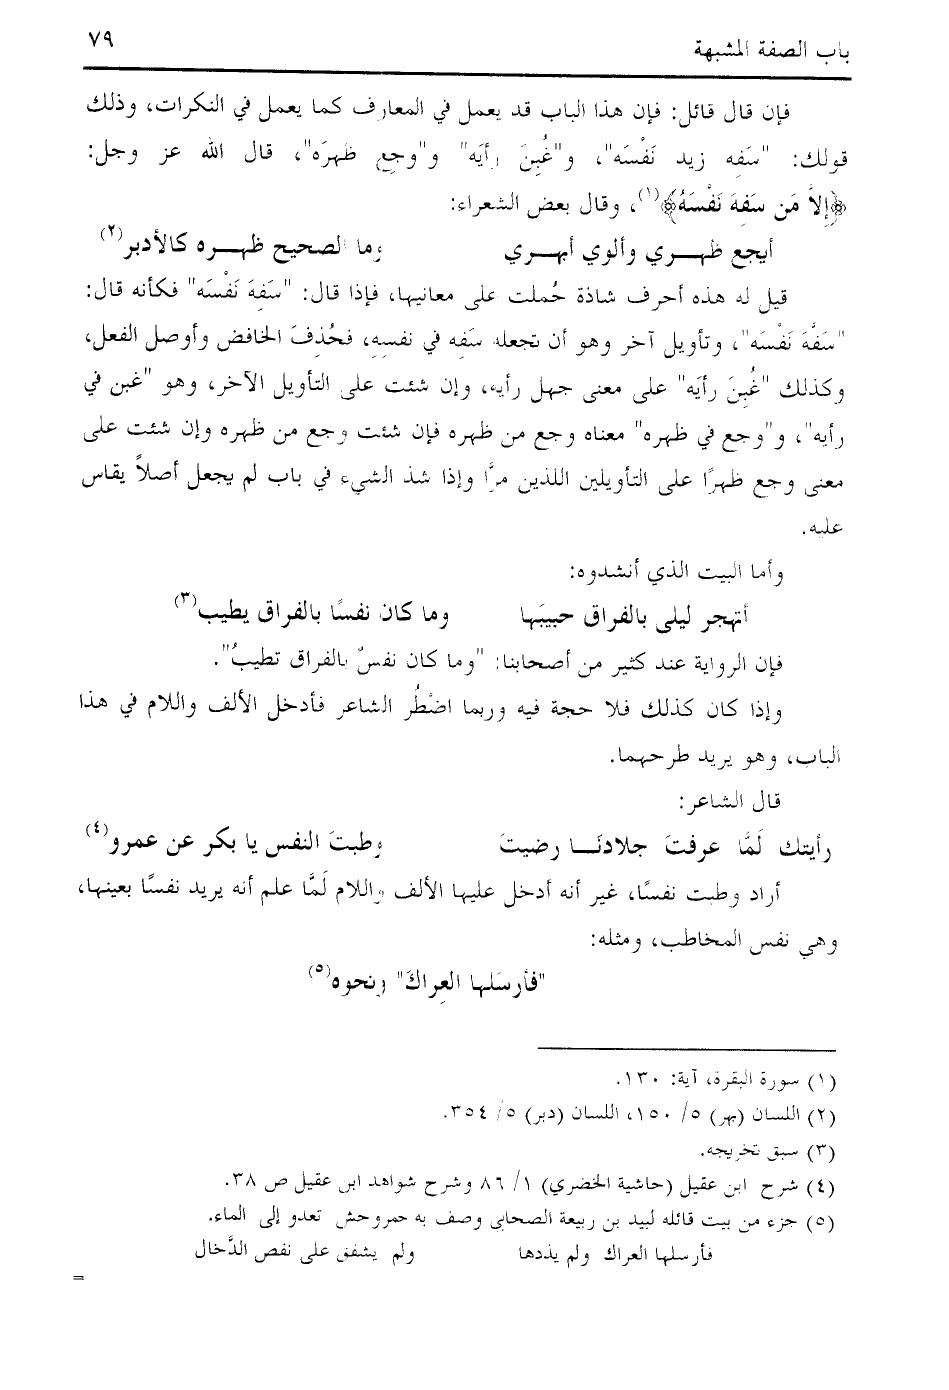 باب الصفة المشبهة ٧٩
فإن قال قائل: فإن هذا الباب قد يعمل في المعارف كما يعمل في النكرات، وذلك
قولك: "سَفه زيد نَفْسَه"، و"غُبِنَ رأيَه" و"وجع ظهرَه"، قال الله عز وجل:
﴿إِلاَّ مَن سَفِهَ نَفْسَهُ﴾(١)، وقال بعض الشعراء:
أيجع ظهـــري وألوي أبهـــري وما الصحيح ظهـــره كالأدبر(٢)
قيل له هذه أحرف شاذة حُملت على معانيها، فإذا قال: "سَفِهَ نَفْسَه" فكأنه قال:
"سَفَّهَ نَفْسَه"، وتأويل آخر وهو أن تجعله سَفِه في نفسِهِ، فحُذِفَ الخافض وأوصل الفعل،
وكذلك "غُبِنَ رأيَه" على معنى جهل رأيه، وإن شئت على التأويل الآخر، وهو "غبن في
رأيه"، و"وجع في ظهره" معناه وجع من ظهره فإن شئت وجع من ظهره وإن شئت على
معنى وجع ظهرًا على التأويلين اللذين مرَّا وإذا شذ الشيء في باب لم يجعل أصلاً يقاس
عليه.
وأما البيت الذي أنشدوه:
أتهجر ليلى بالفراق حبيبَها وما كان نفسًا بالفراق يطيب(٣)
فإن الرواية عند كثير من أصحابنا: "وما كان نفسٌ بالفراق تطيبُ".
وإذا كان كذلك فلا حجة فيه وربما اضْطُر الشاعر فأدخل الألف واللام في هذا
الباب، وهو يريد طرحهما.
قال الشاعر:
رأيتك لَمَّا عرفتَ جلادنَـــا رضيتَ وطبتَ النفس يا بكر عن عمرو(٤)
أراد وطبت نفسًا، غير أنه أدخل عليها الألف واللام لَمَّا علم أنه يريد نفسًا بعينها،
وهي نفس المخاطب، ومثله:
"فأرسَلها العِراكَ" ونحوه(٥)
(١) سورة البقرة، آية: ١٣٠.
(٢) اللسان (بهر) ٥/ ١٥٠، اللسان (دبر) ٥/ ٣٥٤.
(٣) سبق تخريجه.
(٤) شرح ابن عقيل (حاشية الخضري) ١/ ٨٦ وشرح شواهد ابن عقيل ص ٣٨.
(٥) جزء من بيت قائله لبيد بن ربيعة الصحابي وصف به حمر وحش تعدو إلى الماء.
فأرسلها العراك ولم يذدها ولم يشفق على نفص الدَّخال
=